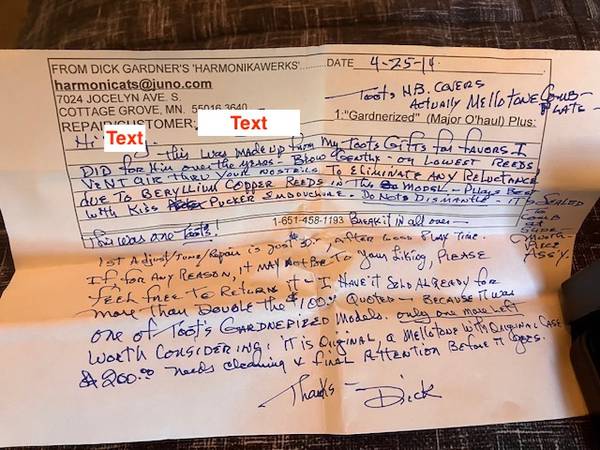 FROM DICK GARDNER'S 'HARMONIKAWERKS'..........DATE 4-25-14
harmonicats@juno.com
7024 JOCELYN AVE S.
COTTAGE GROVE, MN. 55016 3640
Toots H.B. COVERS
Actually Mellotone Comb-
Plats -
REPAIR/CUSTOMER:
1:"Gardnerized" (Major O'haul) Plus:
Text
Text
Hi - this was made up from my Toots Gifts for favors I
DID for Him over the years - Blow Gently - on Lowest Reeds
Vent air thru your nostrils To Eliminate ANY Reluctance
due To Beryllium Copper Reeds in this Model - Plays Best
with Kiss Pucker Embouchure. Do Not Dismantle - it is Sealed
To
Comb
Ass'y.
This was one - Toots!
1-651-458-1193 Break it in all over -
1st Adjust/Tune/Repair is Just after Play Time.
If for any Reason, it may Not Be To your liking, Please
feel free to Return it - I Have it Sold Already for
more Than Double the $160.00 Quoted - Because it was
one of Toot's Gardnerized Models. only one more left
Worth Considering: it is original, a Mellotone with Original Case
$200.00 needs cleaning & final Attention Before it goes.
Thanks - Dick